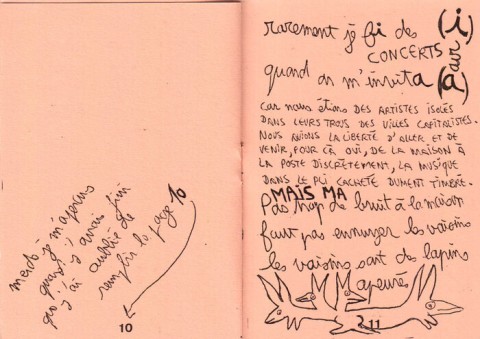 merde je m'aperçus
quand
j'ai j'avais fini
oublié de
remplir la page 10
10
rarement je fi des (i)
CONCERTS
quand on m'invita (a)
car nous étions DES ARTISTES ISOLÉS
DANS LEURS TROUS DES VILLES CAPITALISTES.
NOUS AVIONS LA LIBERTÉ D'ALLER ET DE
VENIR, POUR ÇA OUI, DE LA MAISON À
LA POSTE DISCRÈTEMENT, LA MUSIQUE
DANS LE PLI CACHETÉ DUMENT TIMBRÉ.
MAIS MA
pas trop de bruit à la maison
faut pas ennuyer les voisins
les voisins sont des lapins
apeurés
11